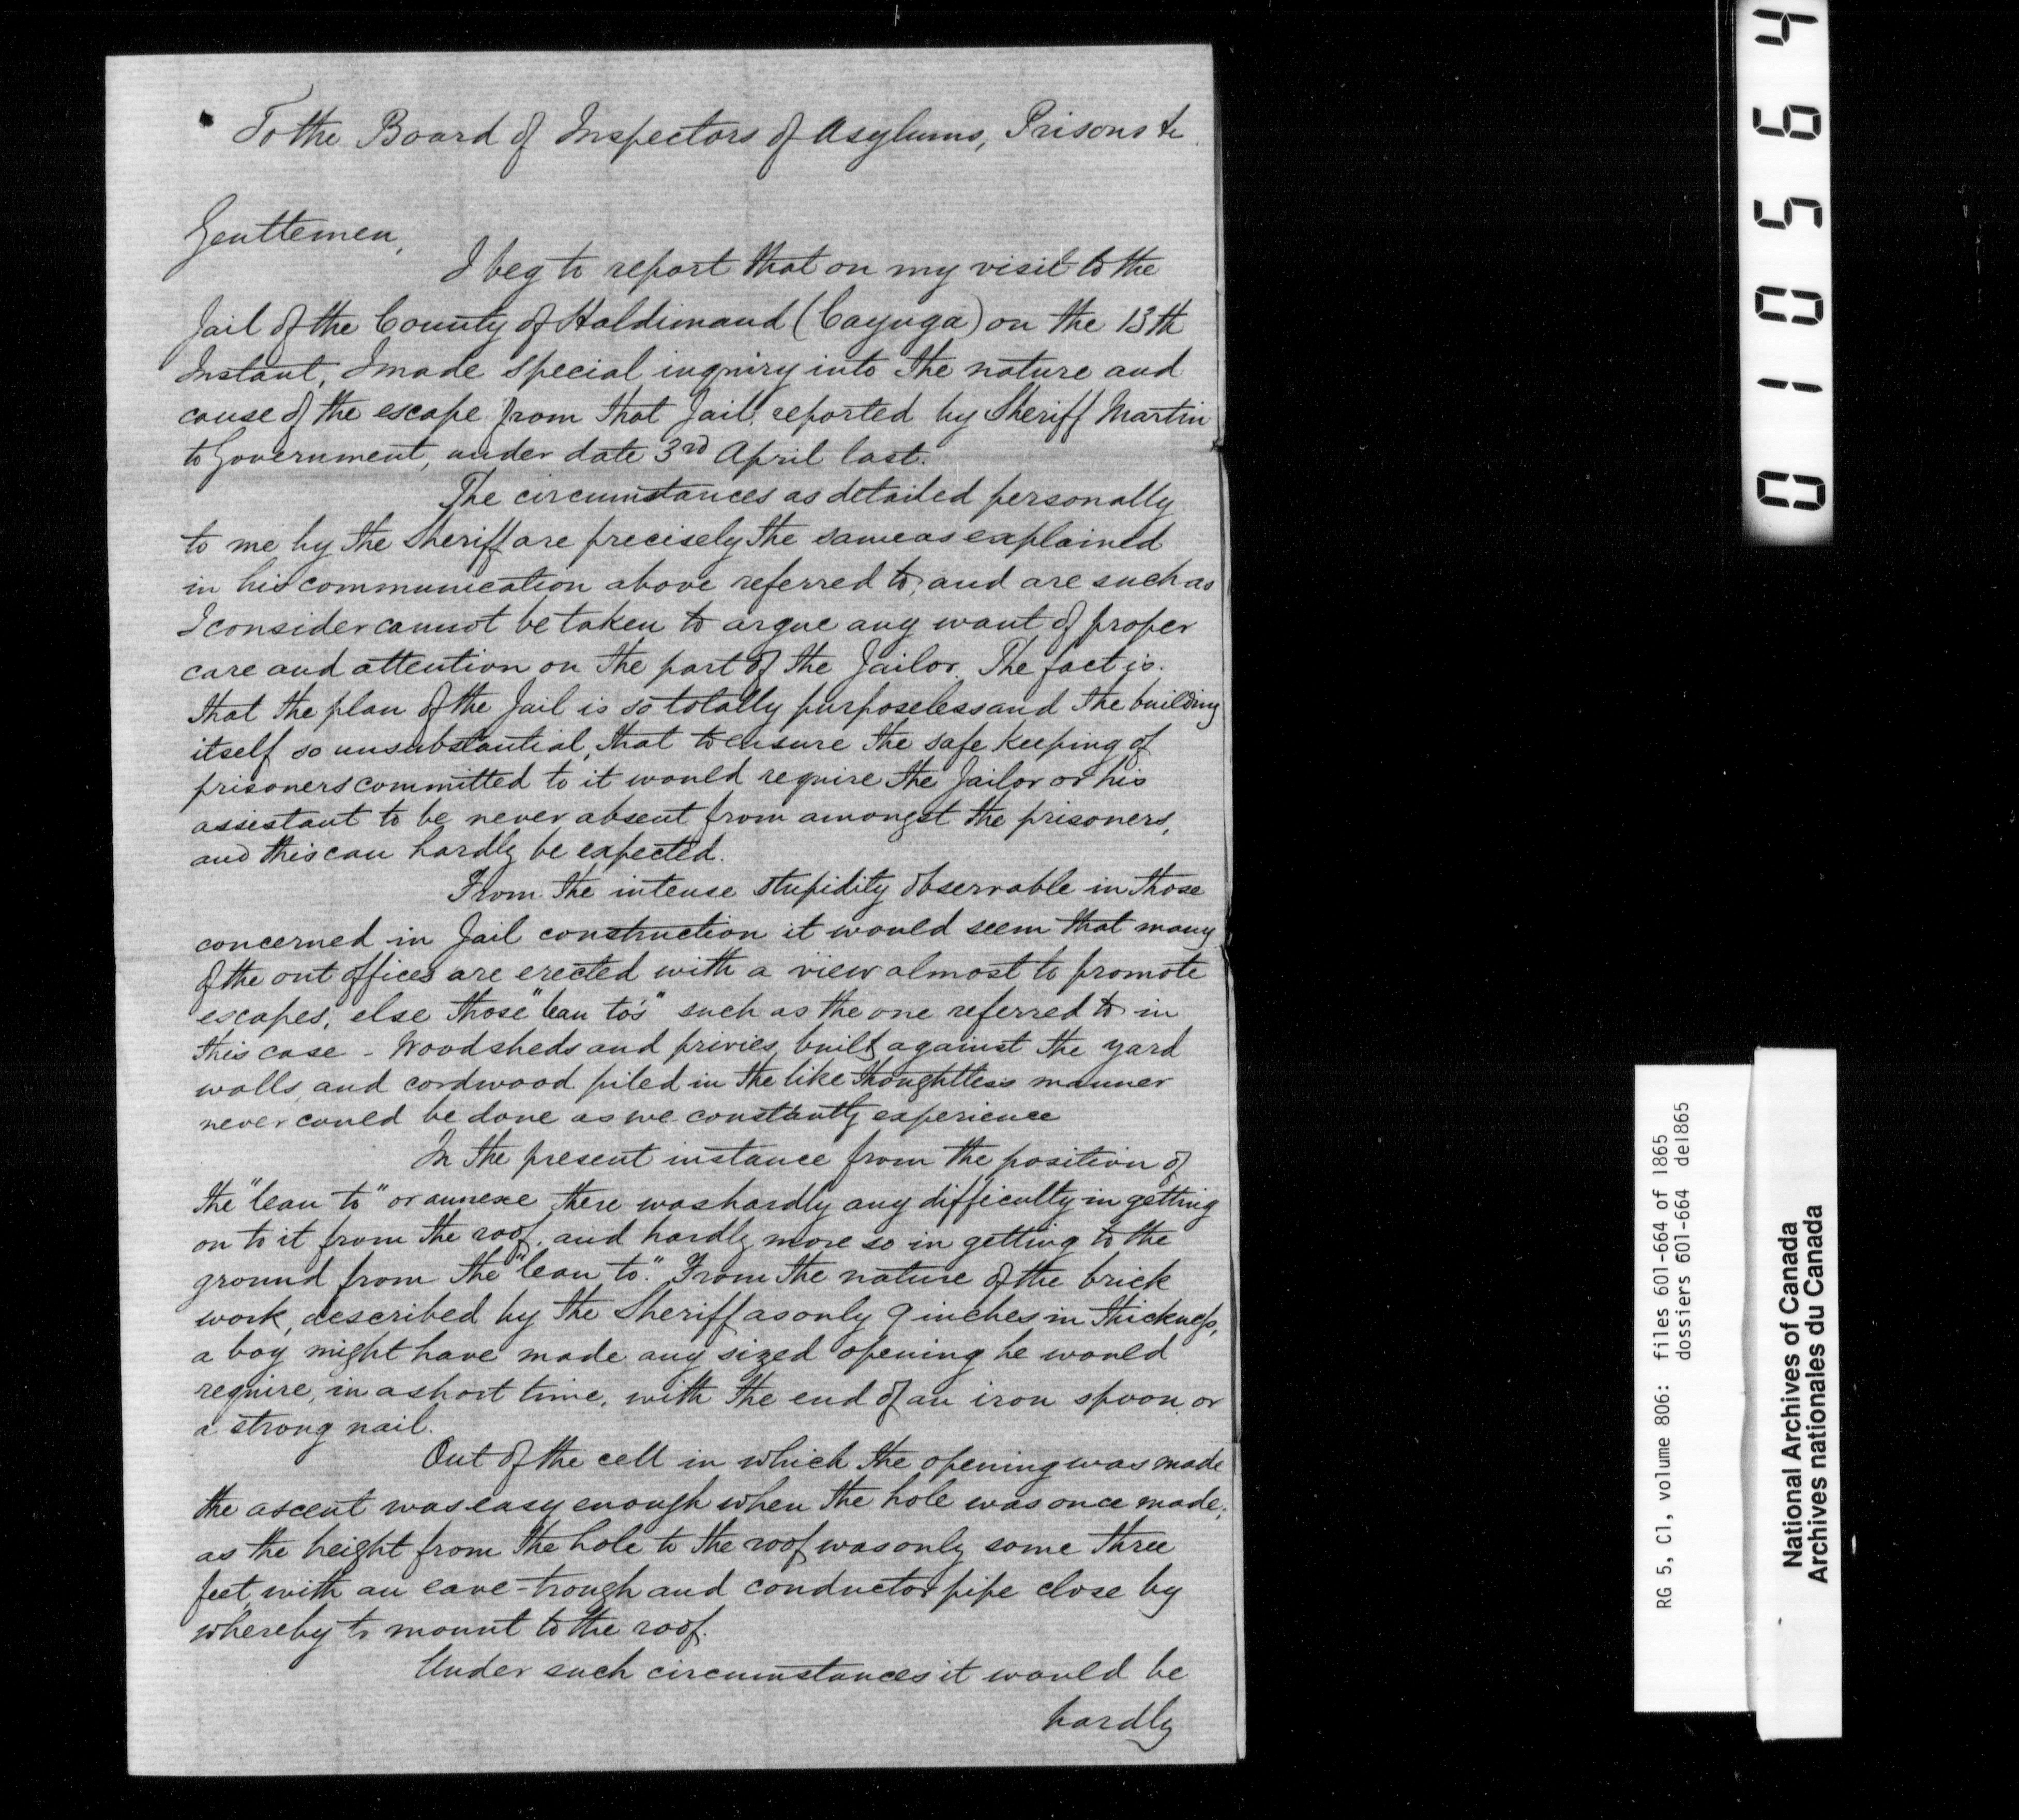 To the Board of Inspectors of Asylums, Prisons &c.
Gentlemen,
I beg to report that on my visit to the
Jail of the County of Haldimand (Cayuga) on the 13th
Instant, I made special inquiry into the nature and
cause of the escape from that Jail, reported by Sheriff Martin
to Government, under date 3rd April last.
The circumstances as detailed personally
to me by the Sheriff are precisely the same as explained
in his communication above referred to, and are such as
I consider cannot be taken to argue any want of proper
care and attention on the part of the Jailor. The fact is.
that the plan of the Jail is so totally purposeless and the building
itself so unsubstantial, that to ensure the safe keeping of
prisoners committed to it would require the Jailor or his
assistant to be never absent from amongst the prisoners,
and this can hardly be expected.
From the intense stupidity observable in those
concerned in Jail construction it would seem that many
of the out offices are erected with a view almost to promote
escapes, else those "lean to's" such as the one referred to in
this case - Woodsheds and privies, built against the yard
walls, and cordwood piled in the like thoughtless manner
never could be done as we constantly experience
In the present instance from the position of
the "lean to" or annexe there was hardly any difficulty in getting
on to it from the roof, and hardly more so in getting to the
ground from the "lean to." From the nature of the brick
work, described by the Sheriff as only 9 inches in thickness,
a boy might have made any sized opening he would
require, in a short time, with the end of an iron spoon or
a strong nail.
Out of the cell in which the opening was made
the ascent was easy enough when the hole was once made;
as the height from the hole to the roof was only some three
feet, with an eave-trough and conductor pipe close by
whereby to mount to the roof.
Under such circumstances it would be
hardly
010564
RG 5, C1, volume 806: files 601-664 of 1865
dossiers 601-664 de1865
National Archives of Canada
Archives nationales du Canada